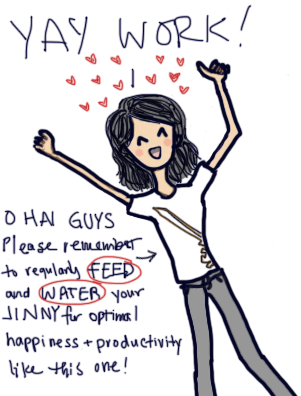 YAY WORK!
O HAI GUYS
Please remember
to regularly FEED
and WATER your
JINNY for optimal
happiness + productivity
like this one!